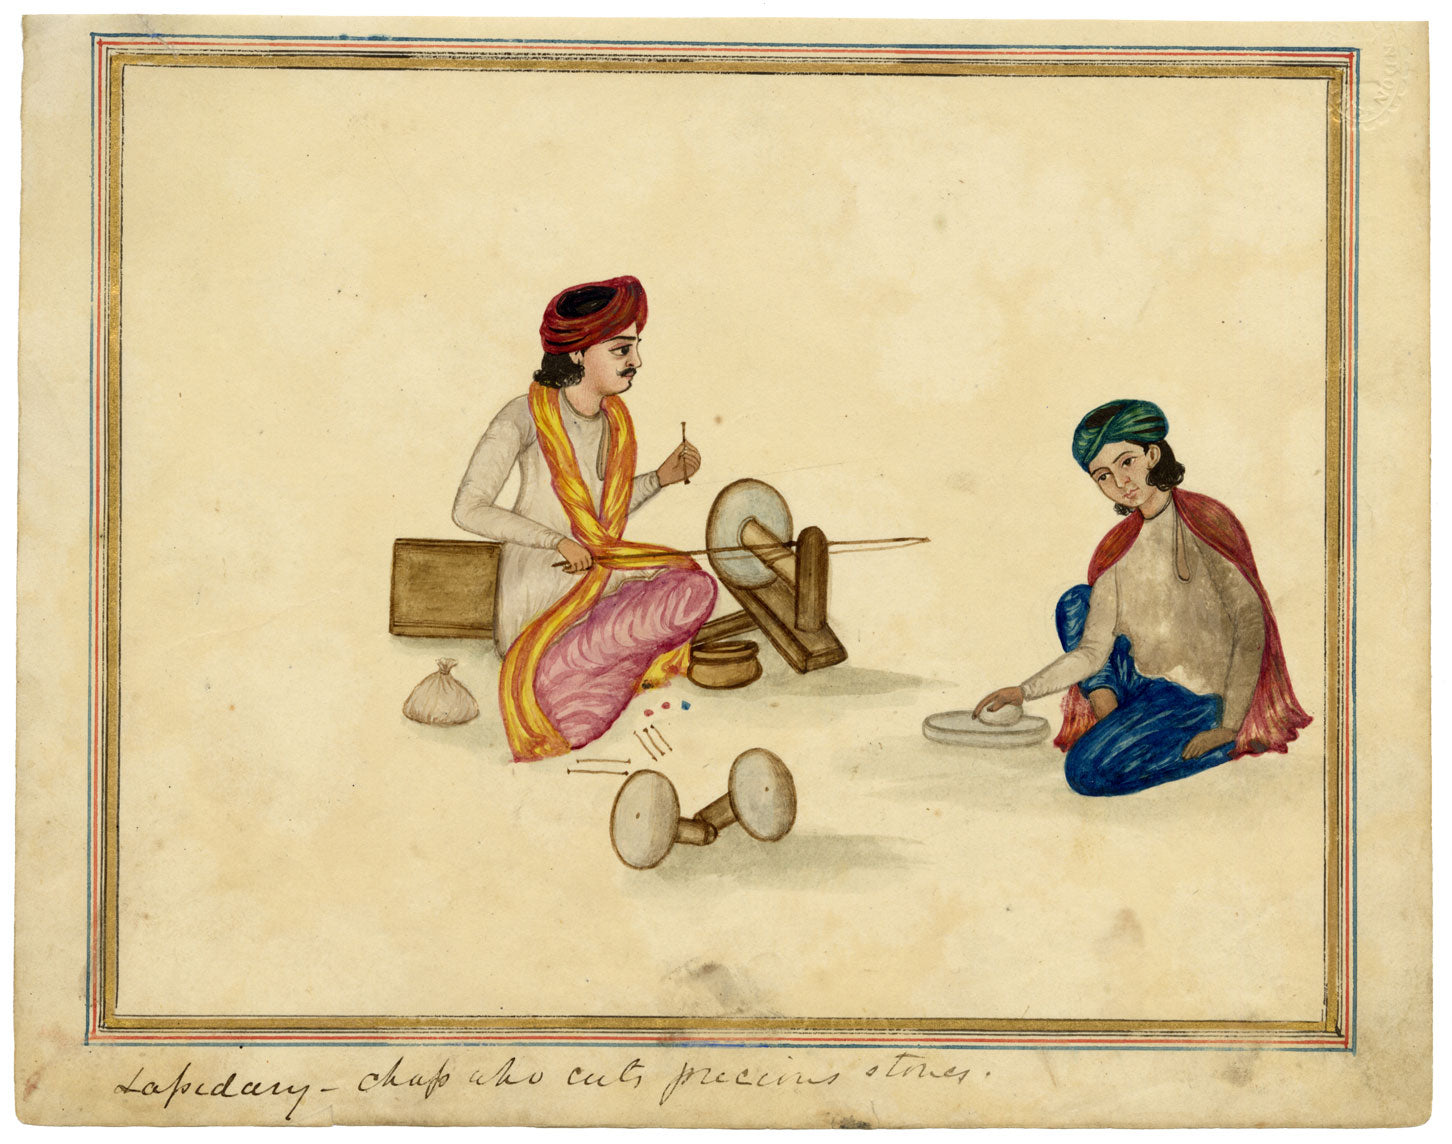 NDON
Lapidary - chap who cuts precious stones.